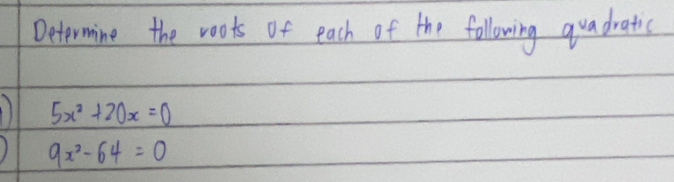 Determine the roots of each of the following quadratic
) 5x² + 20x = 0
) 9x² - 64 = 0